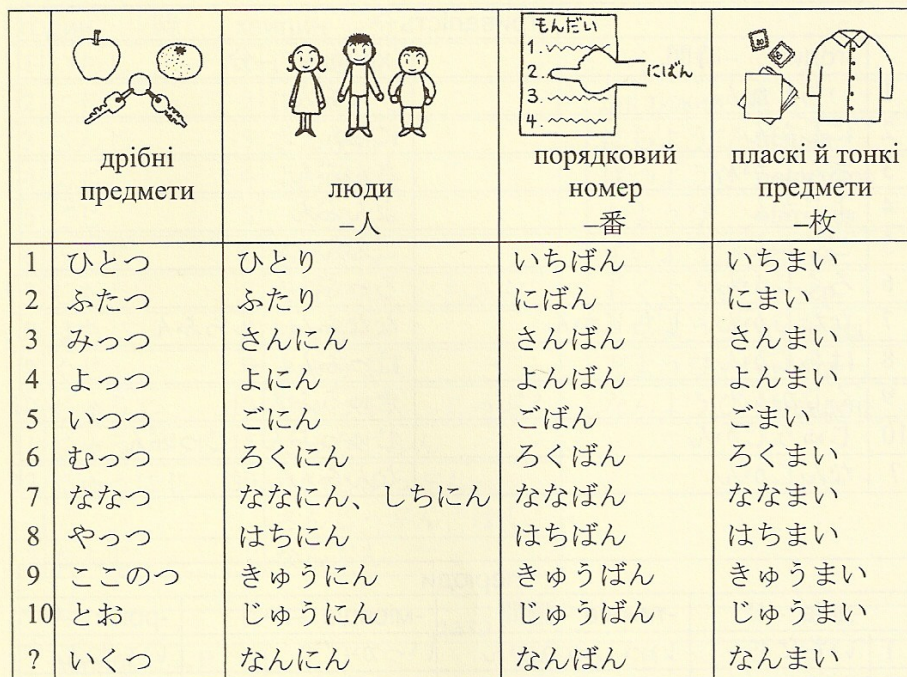 もんだい
1.
2.
3.
4.
にばん
дрібні
предмети
люди
–人
порядковий
номер
–番
пласкі й тонкі
предмети
–枚
1 ひとつ ひとり いちばん いちまい
2 ふたつ ふたり にばん にまい
3 みっつ さんにん さんばん さんまい
4 よっつ よにん よんばん よんまい
5 いつつ ごにん ごばん ごまい
6 むっつ ろくにん ろくばん ろくまい
7 ななつ ななにん、しちにん ななばん ななまい
8 やっつ はちにん はちばん はちまい
9 ここのつ きゅうにん きゅうばん きゅうまい
10 とお じゅうにん じゅうばん じゅうまい
? いくつ なんにん なんばん なんまい